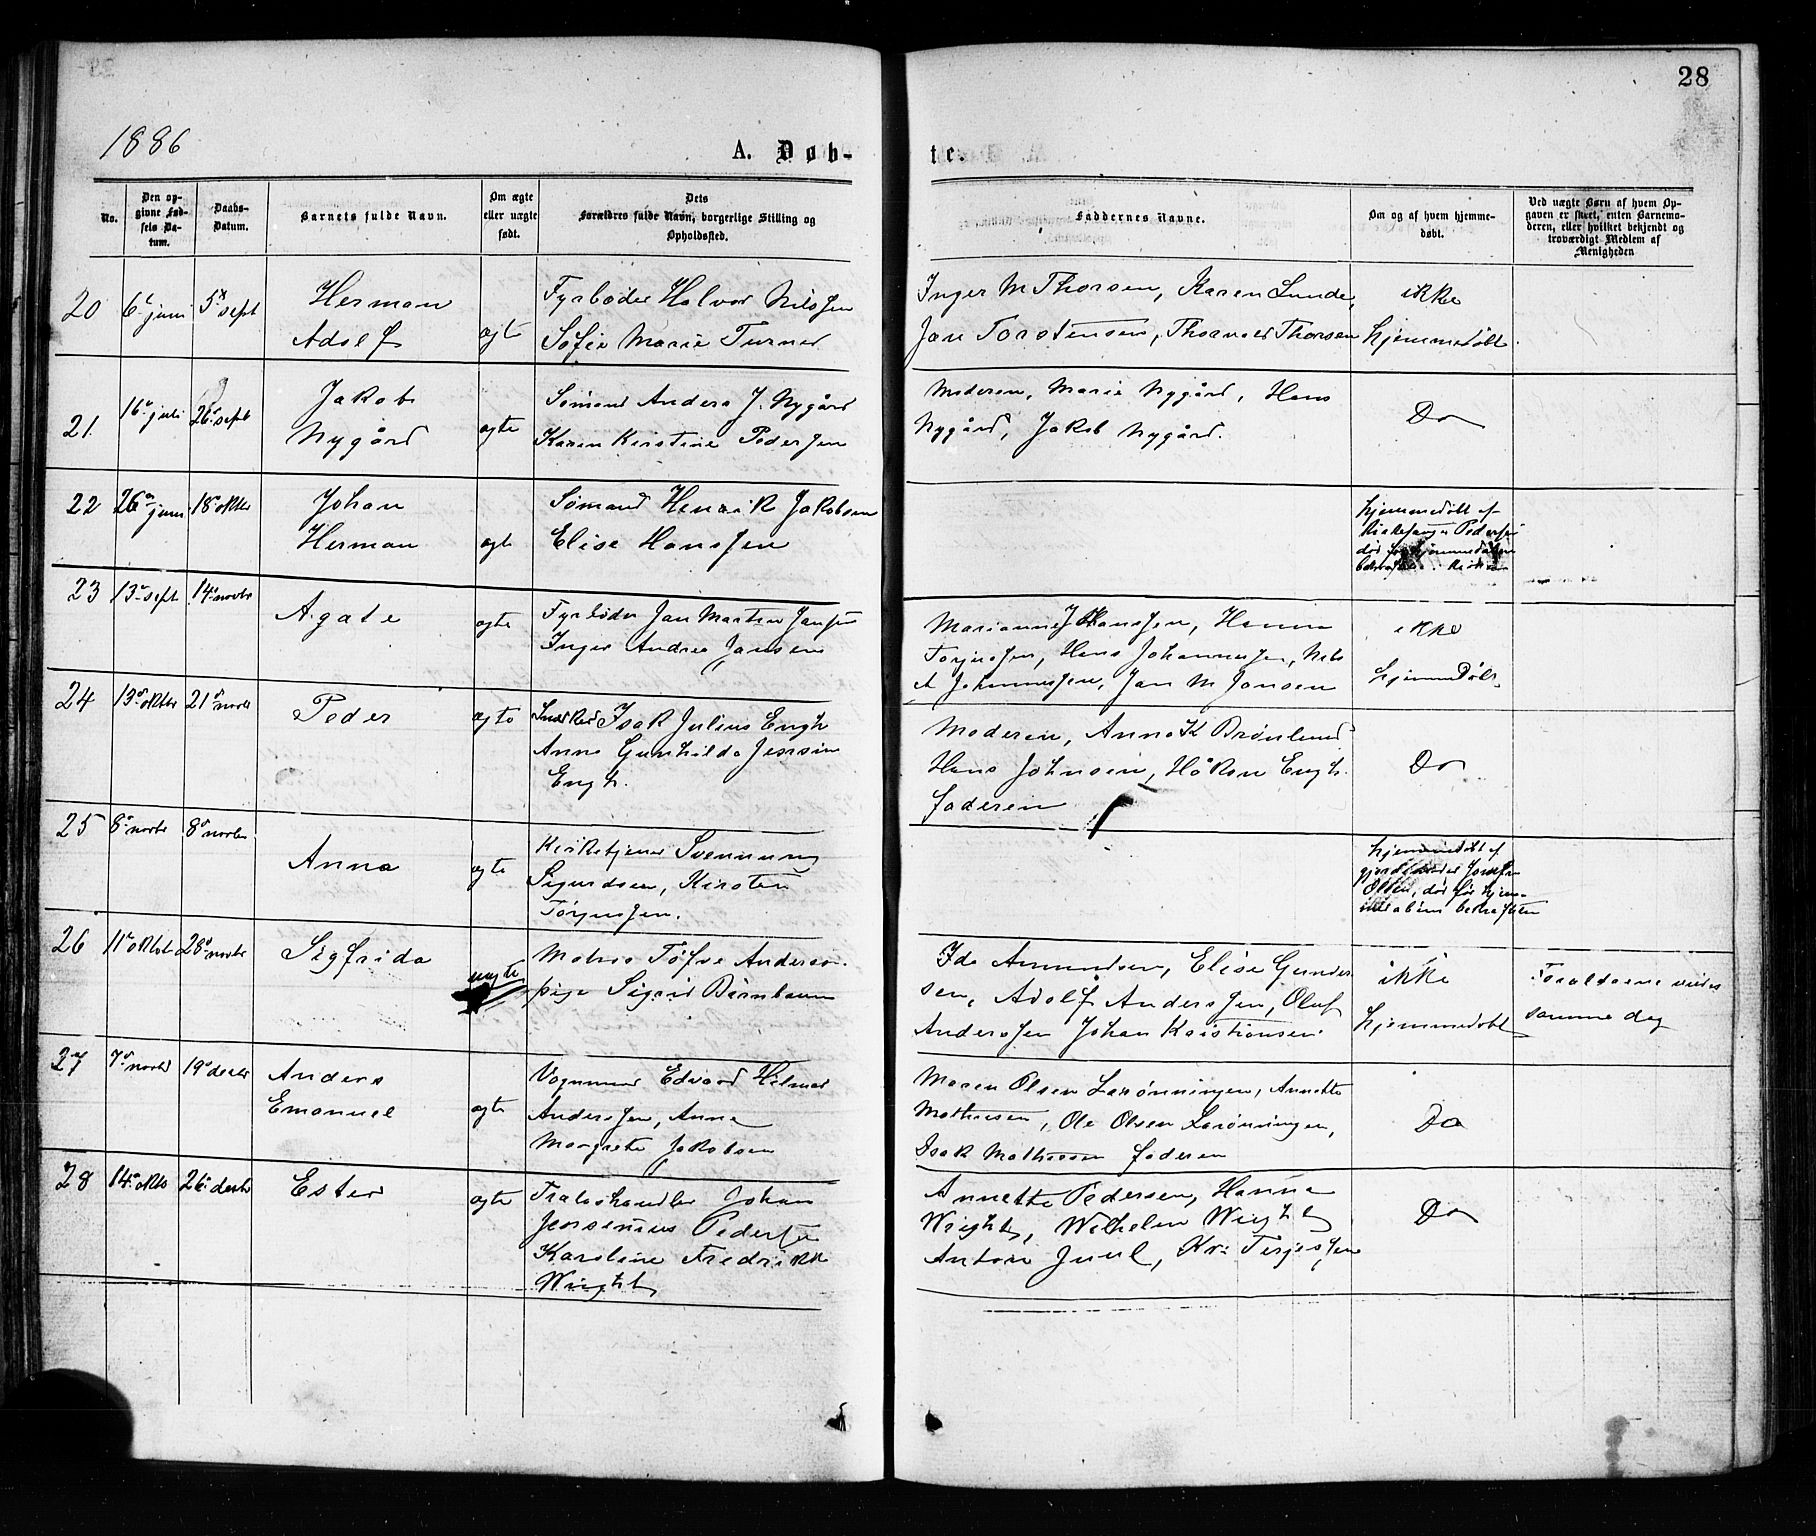 28
1886
A. Døb-
te.
No.
Den op-
givne Fød-
sels Da-
tum.
Daabs-
Datum.
Barnets fulde Navn.
Om ægte
eller uægte
født.
Dets
Forældres fulde Navn, borgerlige Stilling og
Opholdssted.
Faddernes Navne.
Om og af hvem hjemme-
døbt.
Ved uægte Børn af hvem Op-
gaven er skeet, enten Barnemo-
deren, eller hvilket bekjendt og
troværdigt Medlem af
Menigheden
20 6 juni 5 sept Herman Adolf ægte
Fyrbøder Halvor Nilssen
Sofie Marie Turner
Inger M Thorsen, Karen Lunde,
Jan Torstensen, Thorvald Thorsen
ikke
hjemmedøbt
21. 16 juli 26 sept Jakob Nygård ægte
Sømand Anders J. Nygård
Karen Kirstine Pedersen
Moderen, Marie Nygård, Hans
Nygård, Jakob Nygård.
Do
22 26 juni 18 oktbr Johan Herman ægte
Sømand Henrik Jakobsen
Elise Hanssen
hjemmedøbt af
Kirkesanger Pedersen
død før hjemmedåben
23 13 sept 14 novbr Agate ægte
Fyrbøder Jan Martin Jansen
Inger Andrea Jansen
Marianne Hanssen, Hanna
Torjussen, Hans Johannessen, Nils
A Johannessen, Jan M Jansen
ikke
hjemmedøbt
24 13 oktbr 21 novbr Peder ægte
Snedker Isak Julius Engh
Anne Gunhilda Jenssen
Engh.
Moderen, Anna K Brønlund
Hans Johnsen, Håkon Engh.
faderen
Do
25 8 novbr 8 novbr Anna ægte
Kirketjener Svennung
Sigurdsen, Kirsten
Torjussen.
hjemmedøbt af
gjordemoder Josefine
Olsen, død før hjem-
medåben bekræftet
26 11 oktbr 28 novbr Sigfrida uægte
Matros Tofve Anderson
pige Sigrid Bårnbaum
Ida Amundsen, Elise Gunder
sen, Adolf Anderssen, Oluf
Anderssen Johan Kristiansen.
ikke
hjemmedøbt
Forældrene viedes
samme dag
27 7 novbr 19 decbr Anders Emanuel ægte
Vognmand Edvard Hilmar
Anderssen, Anna
Margrete Jakobsen
Maren Olsen Larønningen, Annette
Mathiesen, Ole Olsen Larønningen,
Isak Mathiesen faderen
Do
28 14 oktbr 26 decbr Ester ægte
Trælasthandler Johan
Jensenius Pedersen
Karoline Fredrikke
Wright
Annette Pedersen, Hanna
Wright, Wilhelm Wright
Anton Juul, Kr: Terjessen
Do